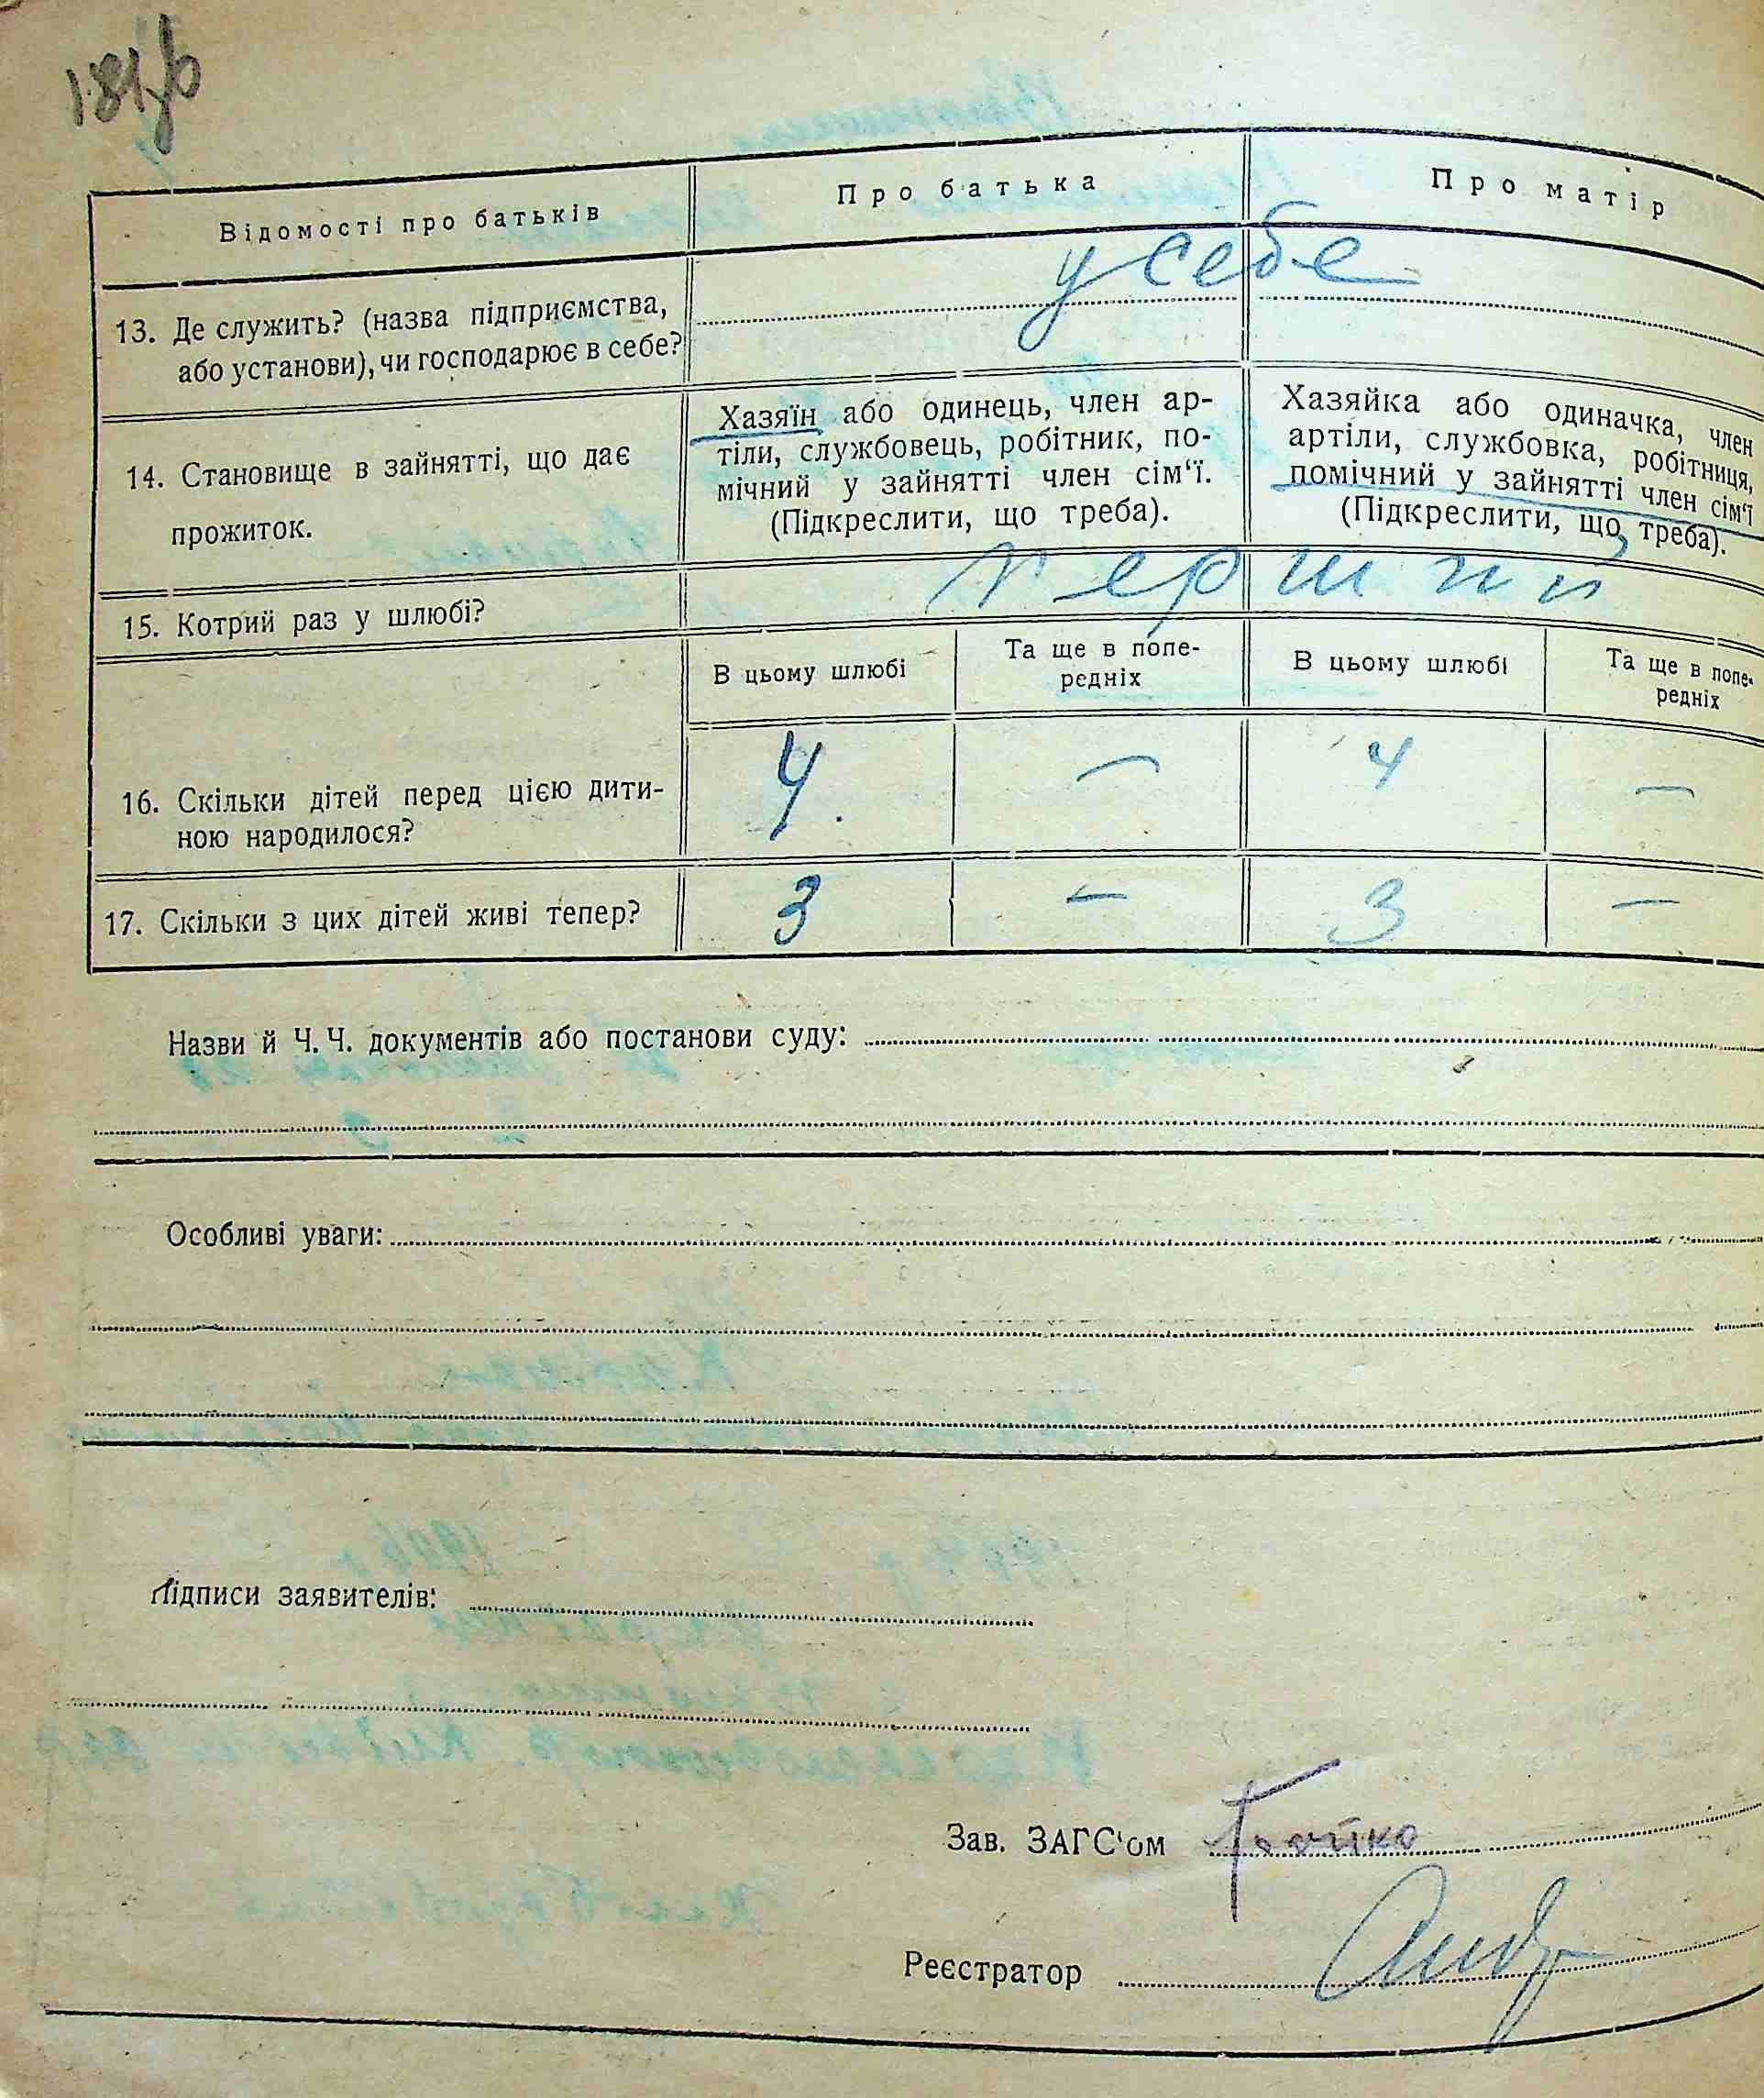 Відомості про батьків
Про батька
Про матір
13. Де служить? (назва підприємства,
або установи), чи господарює в себе?
у себе
14. Становище в зайнятті, що дає
прожиток.
Хазяїн або одинець, член ар-
тіли, службовець, робітник, по-
мічний у зайнятті член сім‘ї.
(Підкреслити, що треба).
Хазяйка або одиначка, член
артіли, службовка, робітниця,
помічний у зайнятті член сім‘ї
(Підкреслити, що треба).
15. Котрий раз у шлюбі?
перший
В цьому шлюбі
Та ще в попе-
редніх
В цьому шлюбі
Та ще в попе-
редніх
16. Скільки дітей перед цією дити-
ною народилося?
4 — 4 —
17. Скільки з цих дітей живі тепер?
3 — 3 —
Назви й Ч. Ч. документів або постанови суду:
Особливі уваги:
Підписи заявителів:
Зав. ЗАГС‘ом Бойко
Реєстратор